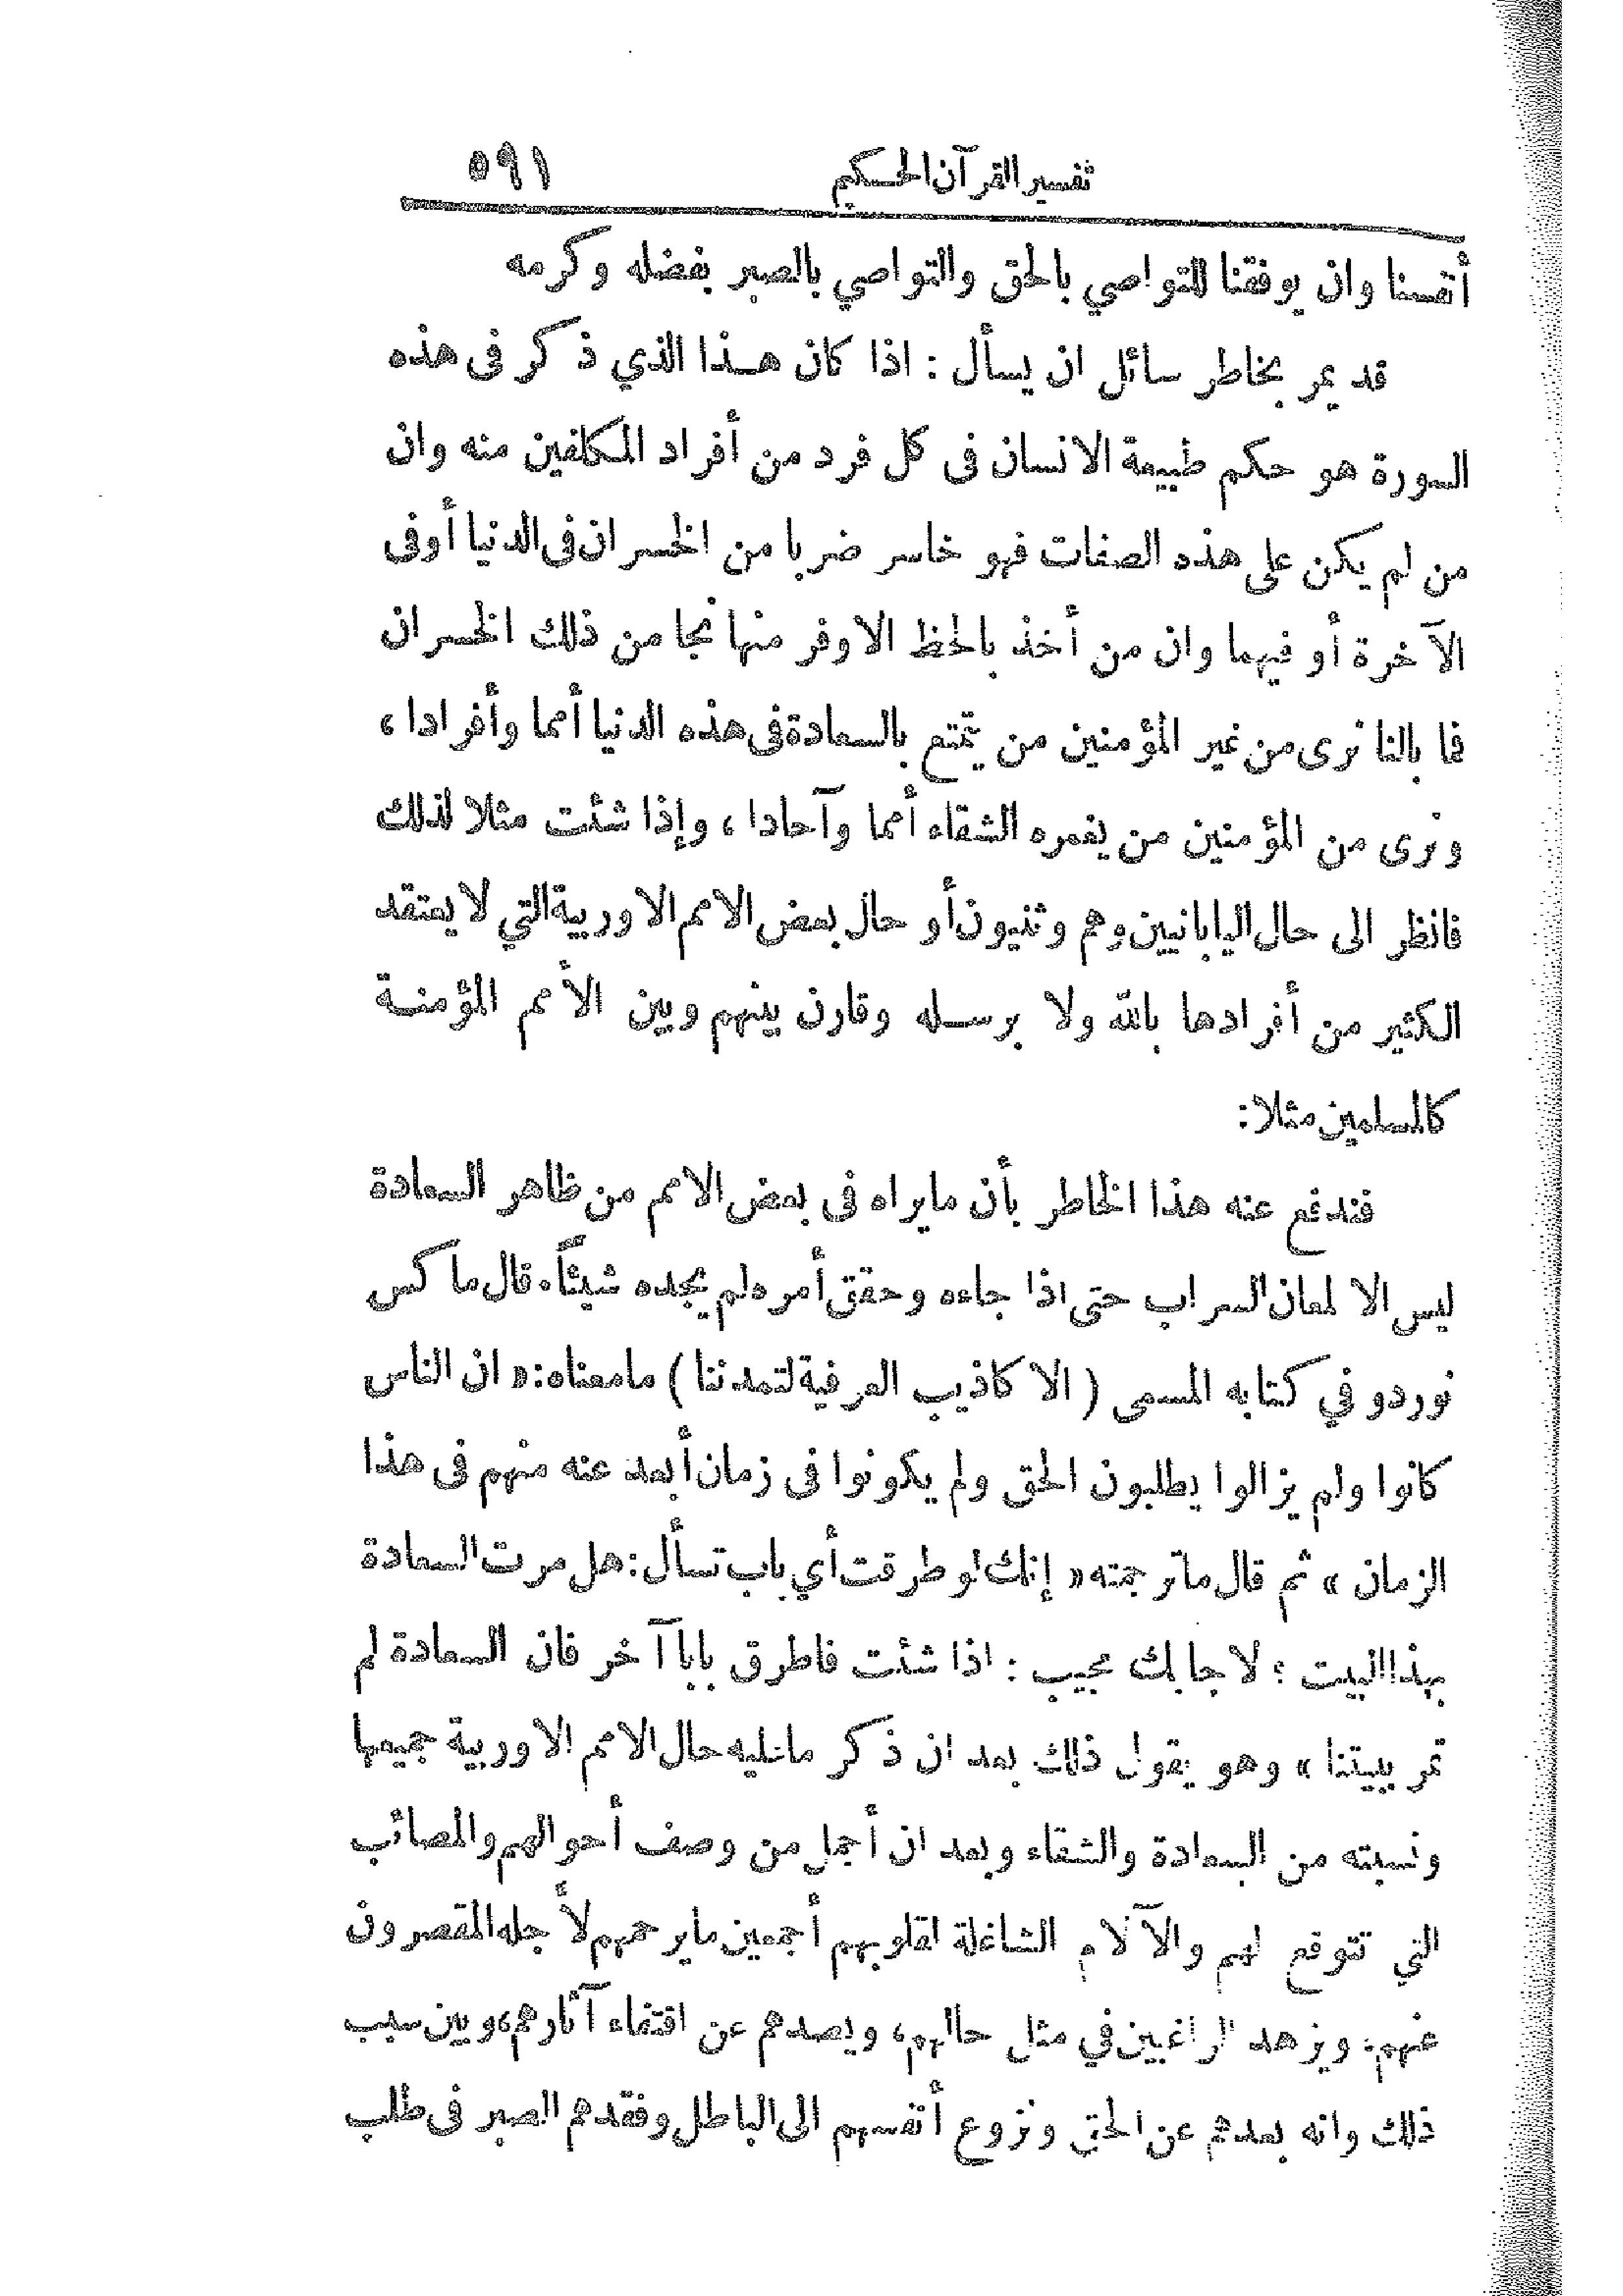 تفسير القرآن الحكيم ٥٩١
أنفسنا وان يوفقنا للتواصي بالحق والتواصي بالصبر بفضله وكرمه
قد يمر بخاطر سائل ان يسأل : اذا كان هذا الذي ذكر فى هذه
السورة هو حكم طبيعة الانسان فى كل فرد من أفراد المكلفين منه وان
من لم يكن على هذه الصفات فهو خاسر ضربا من الخسران فى الدنيا أو فى
الآخرة أو فيهما وان من أخذ بالحظ الاوفر منها نجا من ذلك الخسران
فما بالنا نرى من غير المؤمنين من يتمتع بالسعادة فى هذه الدنيا أمما وأفرادا ،
ونرى من المؤمنين من يغمره الشقاء أمما وآحادا ، وإذا شئت مثلا لذلك
فانظر الى حال اليابانيين وهم وثنيون أو حال بعض الامم الاوربية التي لا يعتقد
الكثير من أفرادها بالله ولا برسله وقارن بينهم وبين الأمم المؤمنة
كالمسلمين مثلا :
فندفع عنه هذا الخاطر بأن ما يراه فى بعض الامم من ظاهر السعادة
ليس الا لمعان السراب حتى اذا جاءه وحقق أمره لم يجده شيئاً . قال ماكس
نوردو في كتابه المسمى ( الاكاذيب العرفية لتمدننا ) ما معناه : « ان الناس
كانوا ولم يزالوا يطلبون الحق ولم يكونوا فى زمان أبعد عنه منهم فى هذا
الزمان » ثم قال ما ترجمته « إنك لو طرقت أي باب تسأل : هل مرت السعادة
بهذا البيت ؛ لاجابك مجيب : اذا شئت فاطرق بابا آخر فان السعادة لم
تمر ببيتنا » وهو يقول ذلك بعد ان ذكر ما عليه حال الامم الاوربية جميعها
ونسبته من السعادة والشقاء وبعد ان أجمل من وصف أحوالهم والمصائب
التي تتوقع لهم والآلام الشاغلة لقلوبهم أجمعين ما يرحمهم لأجله المقصرون
عنهم، ويزهد الراغبين في مثل حالهم، ويصدهم عن اقتفاء آثارهم، وبين سبب
ذلك وانه بعدهم عن الحق ونزوع أنفسهم الى الباطل وفقدهم الصبر فى طلب